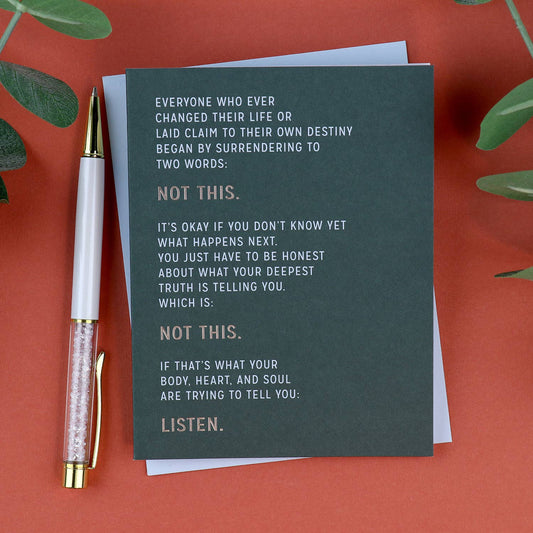 EVERYONE WHO EVER
CHANGED THEIR LIFE OR
LAID CLAIM TO THEIR OWN DESTINY
BEGAN BY SURRENDERING TO
TWO WORDS:
NOT THIS.
IT'S OKAY IF YOU DON'T KNOW YET
WHAT HAPPENS NEXT.
YOU JUST HAVE TO BE HONEST
ABOUT WHAT YOUR DEEPEST
TRUTH IS TELLING YOU.
WHICH IS:
NOT THIS.
IF THAT'S WHAT YOUR
BODY, HEART, AND SOUL
ARE TRYING TO TELL YOU:
LISTEN.